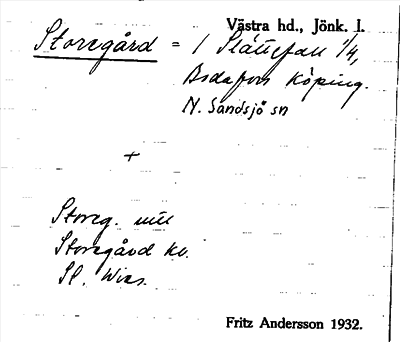 Västra hd., Jönk. l.
Storegård = / Slättefall 1/4,
Bodafors Köping.
N. Sandsjö sn
+
Storeg.
Storegård kv.
Sl.
Fritz Andersson 1932.